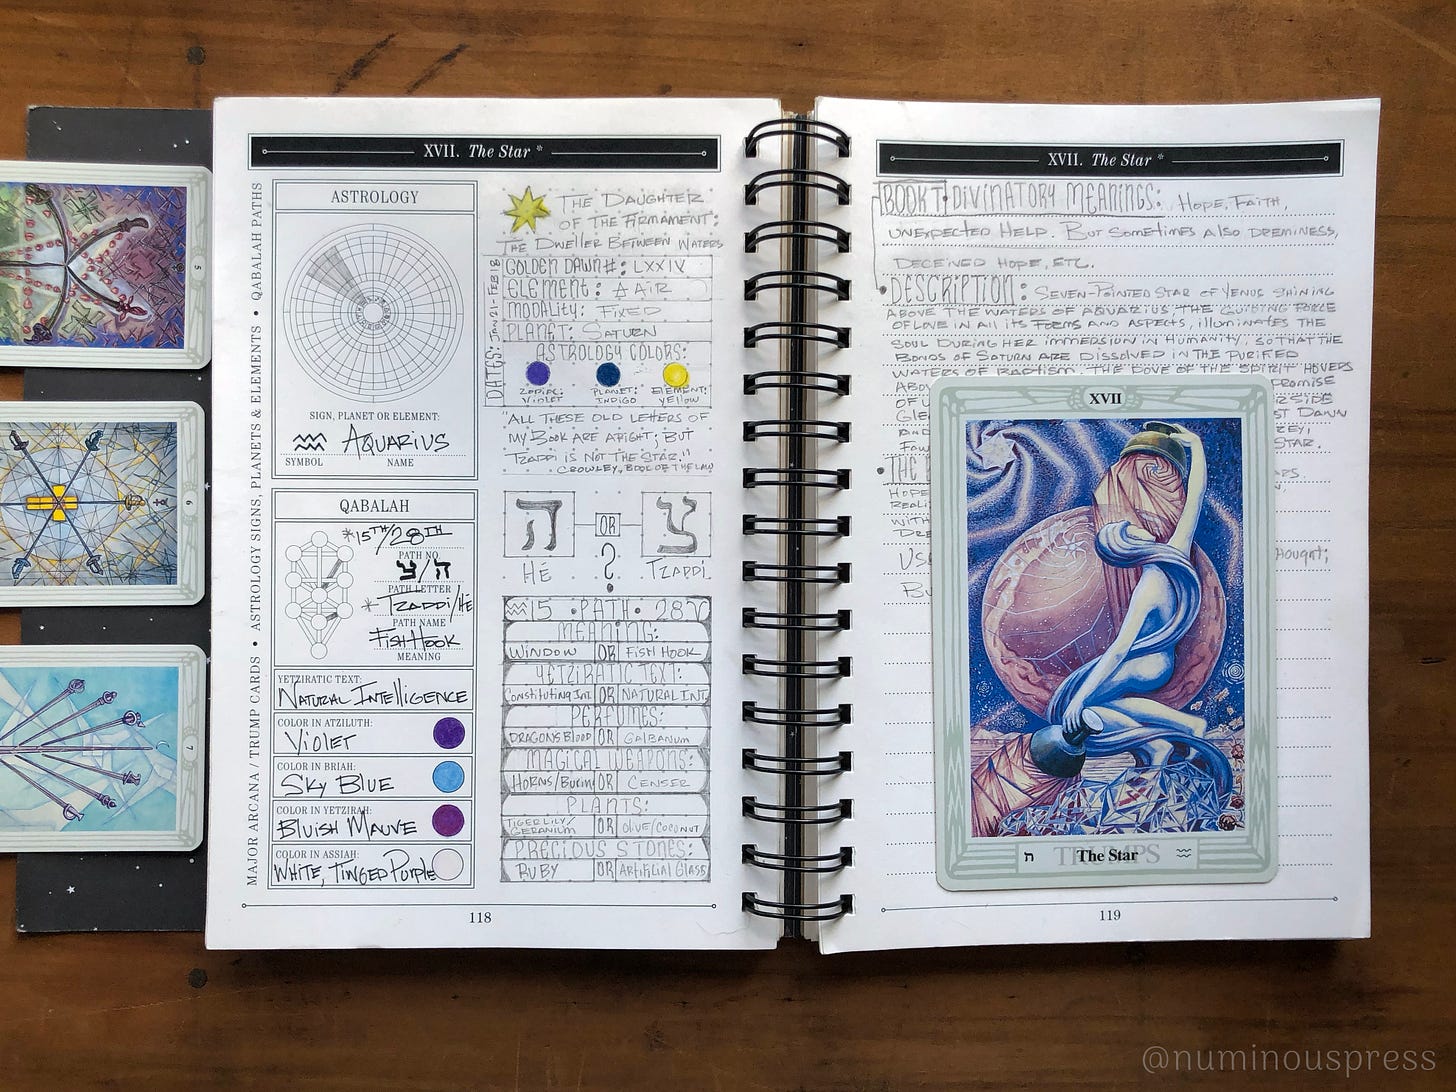 XVII. The Star *
MAJOR ARCANA / TRUMP CARDS • ASTROLOGY SIGNS, PLANETS & ELEMENTS • QABALAH PATHS
ASTROLOGY
SIGN, PLANET OR ELEMENT:
♒ AQUARIUS
SYMBOL NAME
QABALAH
*15TH/28TH
PATH NO.
צ/ה
PATH LETTER
* TZADDI/HÉ
PATH NAME
FISH HOOK
MEANING
YETZIRATIC TEXT:
NATURAL INTELLIGENCE
COLOR IN ATZILUTH:
VIOLET
COLOR IN BRIAH:
SKY BLUE
COLOR IN YETZIRAH:
BLUISH MAUVE
COLOR IN ASSIAH:
WHITE, TINGED PURPLE
THE DAUGHTER
OF THE FIRMAMENT:
THE DWELLER BETWEEN WATERS
DATES: JAN 21 - FEB 18
GOLDEN DAWN #: LXXIV
ELEMENT: 🜁 AIR
MODALITY: FIXED
PLANET: SATURN
ASTROLOGY COLORS:
ZODIAC: PLANET: ELEMENT:
VIOLET INDIGO YELLOW
"ALL THESE OLD LETTERS OF
MY BOOK ARE ARIGHT; BUT
TZADDI IS NOT THE STAR."
CROWLEY, BOOK OF THE LAW
ה OR צ
HÉ ? TZADDI
♒ 15 • PATH • 28
MEANING:
WINDOW OR FISH HOOK
YETZIRATIC TEXT:
CONSTITUTING INT. OR NATURAL INT.
PERFUMES:
DRAGONS BLOOD OR GALBANUM
MAGICAL WEAPONS:
HORNS/BURIN OR CENSER
PLANTS:
TIGER LILY/
GERANIUM OR OLIVE/COCONUT
PRECIOUS STONES:
RUBY OR ARTIFICIAL GLASS
118
XVII. The Star *
BOOK T DIVINATORY MEANINGS: HOPE, FAITH,
UNEXPECTED HELP. BUT SOMETIMES ALSO DREMINESS,
DECEIVED HOPE, ETC.
• DESCRIPTION: SEVEN-POINTED STAR OF VENUS SHINING
ABOVE THE WATERS OF AQUARIUS, THE GUIDING FORCE
OF LOVE IN ALL ITS FORMS AND ASPECTS, ILLUMINATES THE
SOUL DURING HER IMMERSION IN HUMANITY, SO THAT THE
BONDS OF SATURN ARE DISSOLVED IN THE PURIFIED
WATERS OF BAPTISM. THE DOVE OF THE SPIRIT HOVERS
PROMISE
OF
DAWN
AND
STAR.
• THE
HOPE
WITH
XVII
ה TRUMPS The Star ♒
119
5
6
7
@numinouspress